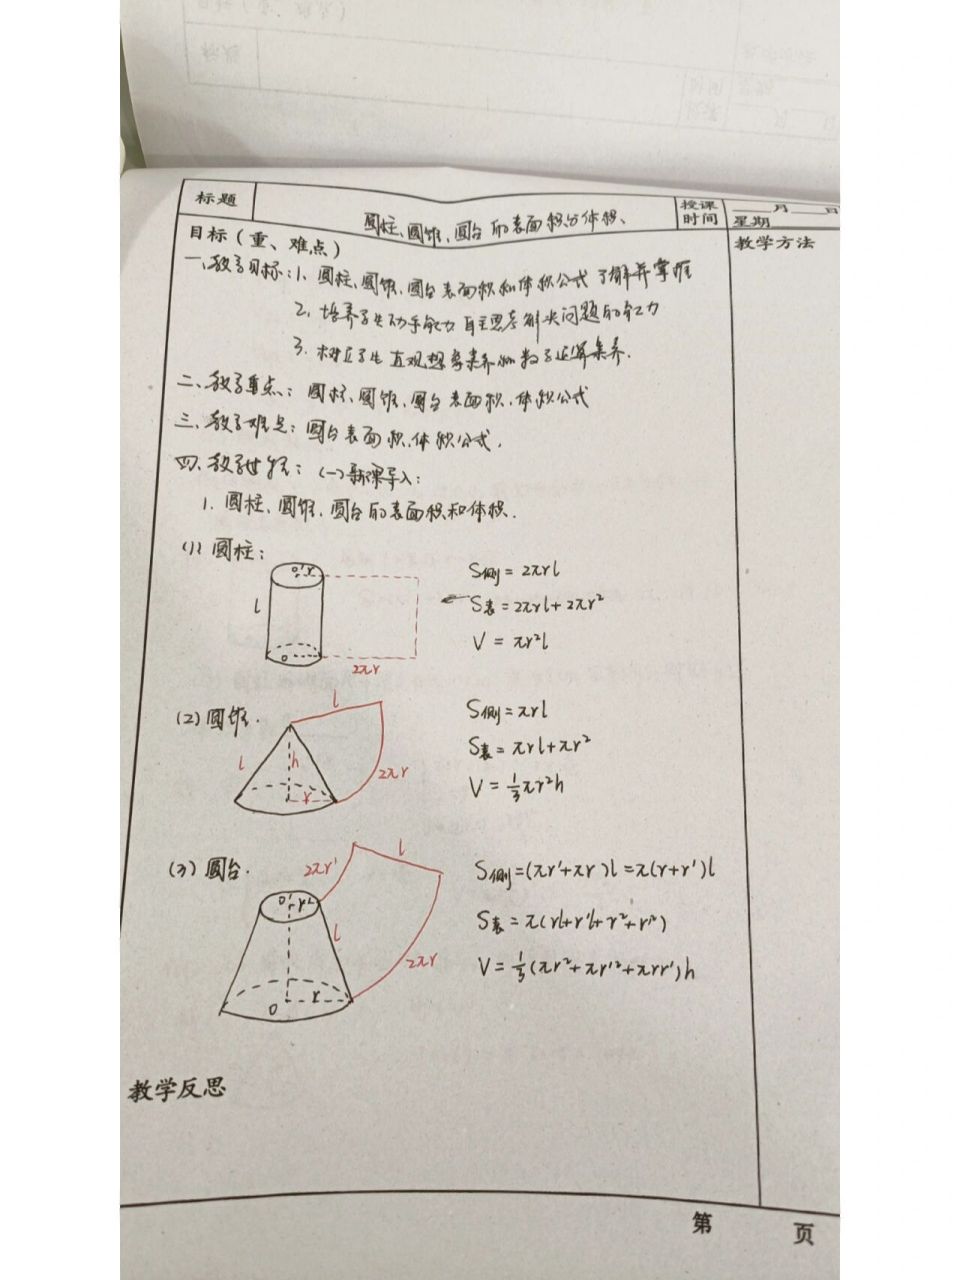 标题
圆柱、圆锥、圆台的表面积与体积、
授课时间
___月___日
星期
目标(重、难点)
教学方法
一、教学目标:1. 圆柱、圆锥、圆台表面积和体积公式了解并掌握
2. 培养学生动手能力 自主思考解决问题的能力
3. 树立学生直观想象素养和数学运算素养.
二、教学重点: 圆柱、圆锥、圆台表面积、体积公式
三、教学难点: 圆台表面积、体积公式.
四、教学过程: (一)新课导入:
1. 圆柱、圆锥、圆台的表面积和体积.
(1) 圆柱:
O' r
l
O
2πr
S侧 = 2πrl
S表 = 2πrl + 2πr²
V = πr²l
(2) 圆锥.
l
l
h
r
2πr
S侧 = πrl
S表 = πrl + πr²
V = 1/3 πr²h
(3) 圆台.
2πr'
l
O' r'
l
2πr
r
O
S侧 = (πr' + πr)l = π(r + r')l
S表 = π(rl + r'l + r² + r'²)
V = 1/3 (πr² + πr'² + πrr')h
教学反思
第 页